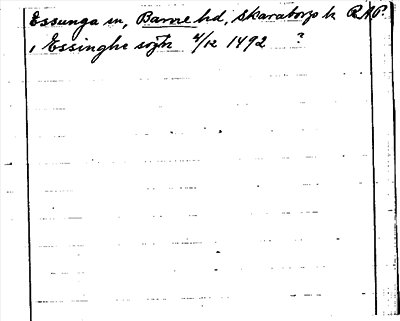 Essunga sn, Barne hd, Skaraborgs l. RAP.
i Essinghe sogn 4/12 1492 ?